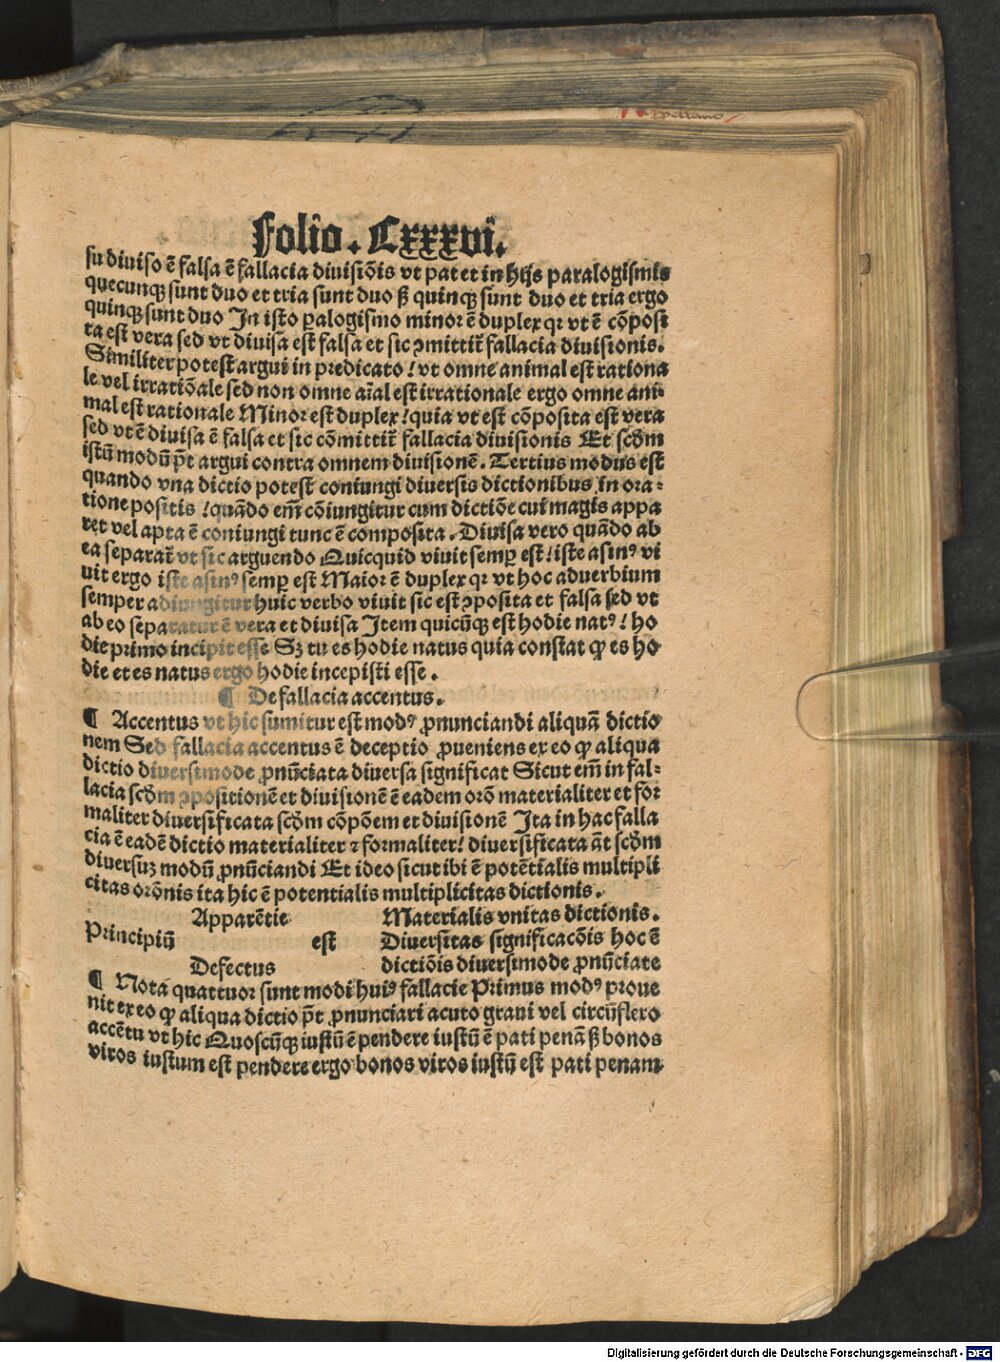 Folio. Cxxxvi.
su diuiso ē falsa ē fallacia diuisiōis vt patet in htijs paralogismis
quecunqꝫ sunt duo et tria sunt duo ꝫ quinqꝫ sunt duo et tria ergo
quinqꝫ sunt duo In isto ꝑalogismo minor ē duplex qꝛ vt ē cōposi
ta est vera sed vt diuisa est falsa et sic ꝯmittit̄ fallacia diuisionis.
Similiter potest argui in predicato / vt omne animal est rationa
le vel irratiōale sed non omne aīal est irrationale ergo omne ani⸗
mal est rationale Minor est duplex / quia vt est cōposita est vera
sed vt ē diuisa ē falsa et sic cōmittit̄ fallacia diuisionis Et scđm
istū modū pt̄ argui contra omnem diuisionē. Tertius modus est
quando vna dictio potest coniungi diuersis dictionibus in ora⸗
tione positis / quādo em̄ cōiungitur cum dictiōe cui magis appa
ret vel apta ē coniungi tunc ē composita. Diuisa vero quādo ab
ea separat̄ vt sic arguendo Quicquid viuit semꝑ est / iste asinꝰ vi
uit ergo iste asinꝰ semꝑ est Maior ē duplex qꝛ vt hoc aduerbium
semper adiungitur huic verbo viuit sic est ꝯposita et falsa sed vt
ab eo separatur ē vera et diuisa Item quicūqꝫ est hodie natꝰ / ho
die primo incipit esse Sꝫ tu es hodie natus quia constat ꝙ es ho
die et es natus ergo hodie incepisti esse.
¶ De fallacia accentus.
¶ Accentus vt hic sumitur est modꝰ ꝓnunciandi aliquā dictio
nem Sed fallacia accentus ē deceptio ꝓueniens ex eo ꝙ aliqua
dictio diuersimode ꝓnūciata diuersa significat Sicut em̄ in fal⸗
lacia scđm ꝯpositionē et diuisionē ē eadem orō materialiter et for
maliter diuersificata scđm cōpōem et diuisionē Ita in hac falla
cia ē eadē dictio materialiter ⁊ formaliter / diuersificata āt scđm
diuersuꝫ modū ꝓnūciandi Et ideo sicut ibi ē potētialis multipli
citas orōnis ita hic ē potentialis multiplicitas dictionis.
Apparētie Materialis vnitas dictionis.
Principiū est Diuersitas significacōis hoc ē
Defectus dictiōis diuersimode ꝓnūciate
¶ Nota quattuor sunt modi huiꝰ fallacie Primus modꝰ proue
nit ex eo ꝙ aliqua dictio pt̄ ꝓnunciari acuto graui vel circūflexo
accētu vt hic Quoscūqꝫ iustū ē pendere iustū ē pati penā ꝫ bonos
viros iustum est pendere ergo bonos viros iustū est pati penam
Digitalisierung gefördert durch die Deutsche Forschungsgemeinschaft - DFG